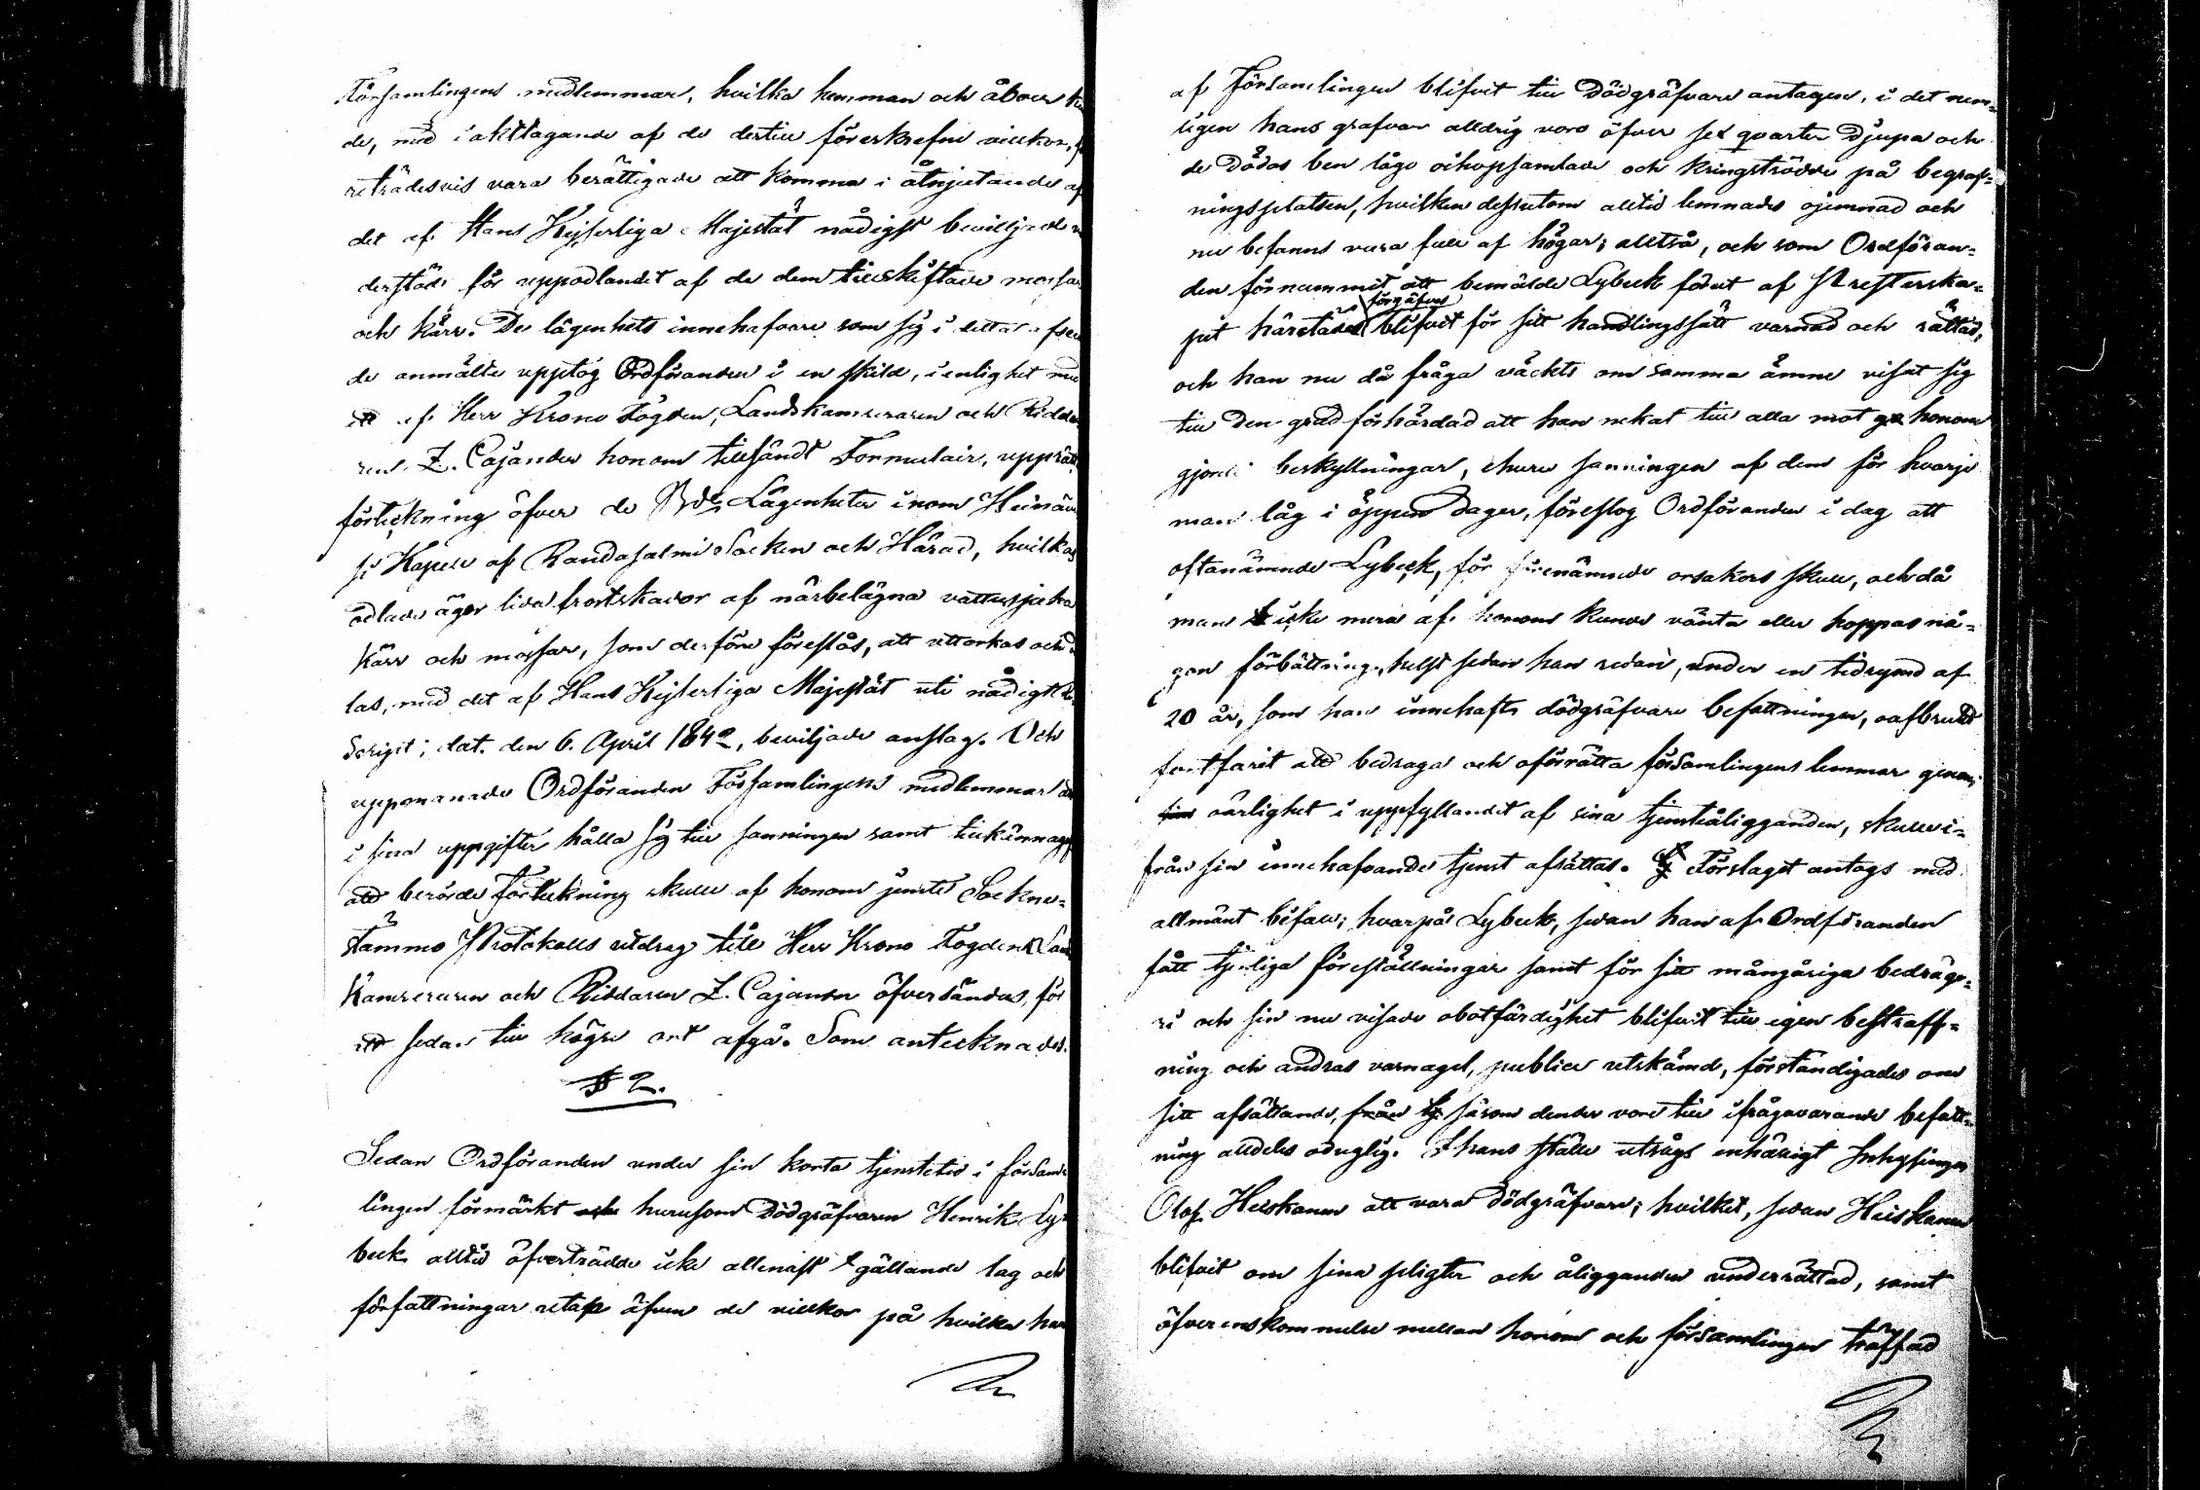 Församlingens medlemmar, hvilka hemman och åboer
de, med iakttagande af de dertill föreskrefne villkor,
reträdesvis vara berättigade att komma i åtnjutande af
det af Hans Kejserliga Majestät nådigst beviljade
derstäd för uppodlandet af de dem tillskiftade mossar
och kärr. De lägenhets innehafvare som sig i detta afse
de anmälte upptog Ordföranden i en skild, i enlighet med
ett af Herr Krono Fogden, Landskamreraren och Ridda
ren Z. Cajander honom tillsändt Formulair, upprätt
förteckning öfver de Lägenheter inom Heinäve
si Kapell af Randasalmi Socken och Härad, hvilkas
odlade ägor lida frostskador af närbelägna vattusjuka
kärr och mossar, som derföre föreslås, att uttorkas och
las, med det af Hans Kejserliga Majestät uti nådigt Re
script, dat. den 6. April 1842, beviljade anslag. Och
uppmanade Ordföranden Församlingens medlemmar att
i sina uppgifter hålla sig till sanningen samt tillkännagaf
att berörde Förteckning skulle af honom jemte Sockne-
stämmo Protokolls utdrag till Herr Krono Fogden Lands
Kamreraren och Riddaren Z. Cajander öfversändas, för
att sedan till högre ort afgå. Som antecknades.
§ 2.
Sedan Ordföranden under sin korta tjenstetid i församl
lingen förmärkt och hurusom Dödgräfvaren Henrik Ly-
beck alltid öfverträdde icke allenast gällande lag och
författningar utan äfven de villkor på hvilka han
af Församlingen blifvit till Dödgräfvare antagen, i det nem-
ligen hans grafvar alldrig voro öfver sex qvarter djupa och
de Dödas ben lågo ohopsamlade och kringströdde på begraf-
ningsplatsen, hvilken dessutom alltid lemnades ojemnad och
nu befanns vara full af högar; alltså, och som Ordföran-
den förnummit, att bemälde Lybeck förut af Presterska-
pet härstädes förgäfves blifvit för sitt handlingssätt varnad och rättad,
och han nu då fråga väckts om samma ämne visat sig
till den grad förhärdad att han nekat till alla mot honom
gjorde beskyllningar, ehuru sanningen af dem för hvarje
man låg i öppen dager, föreslog Ordföranden i dag att
oftanämnde Lybeck, för förenämnde orsakers skull, och då
man icke mera af honom kunde vänta eller hoppas nå-
gon förbättring, helst sedan han redan, under en tidrymd af
20 år, som han innehaft dödgräfvare befattningen, oafbrutet
fortfarit att bedraga och oförrätta församlingens lemmar genom
sin oärlighet i uppfyllandet af sina tjensteåligganden, skulle i-
från sin innehafvande tjenst afsättas. Förslaget antogs med
allmänt bifall; hvarpå Lybeck, sedan han af Ordföranden
fått tjenliga föreställningar samt för sitt mångåriga bedräge-
ri och sin nu visade obotfärdighet blifvit till egen bestraff-
ning och andras varnagel, publice utskämd, förständigades om
sitt afsättande, från sin såsom dender vore till ifrågavarande befatt-
ning alldeles oduglig. I hans ställe utsågs enhälligt Inhysingen
Olof Heiskanen att vara Dödgräfvare; hvilket, sedan Heiskanen
blifvit om sina pligter och åligganden underrättad, samt
öfverenskommelse mellan honom och församlingen träffad